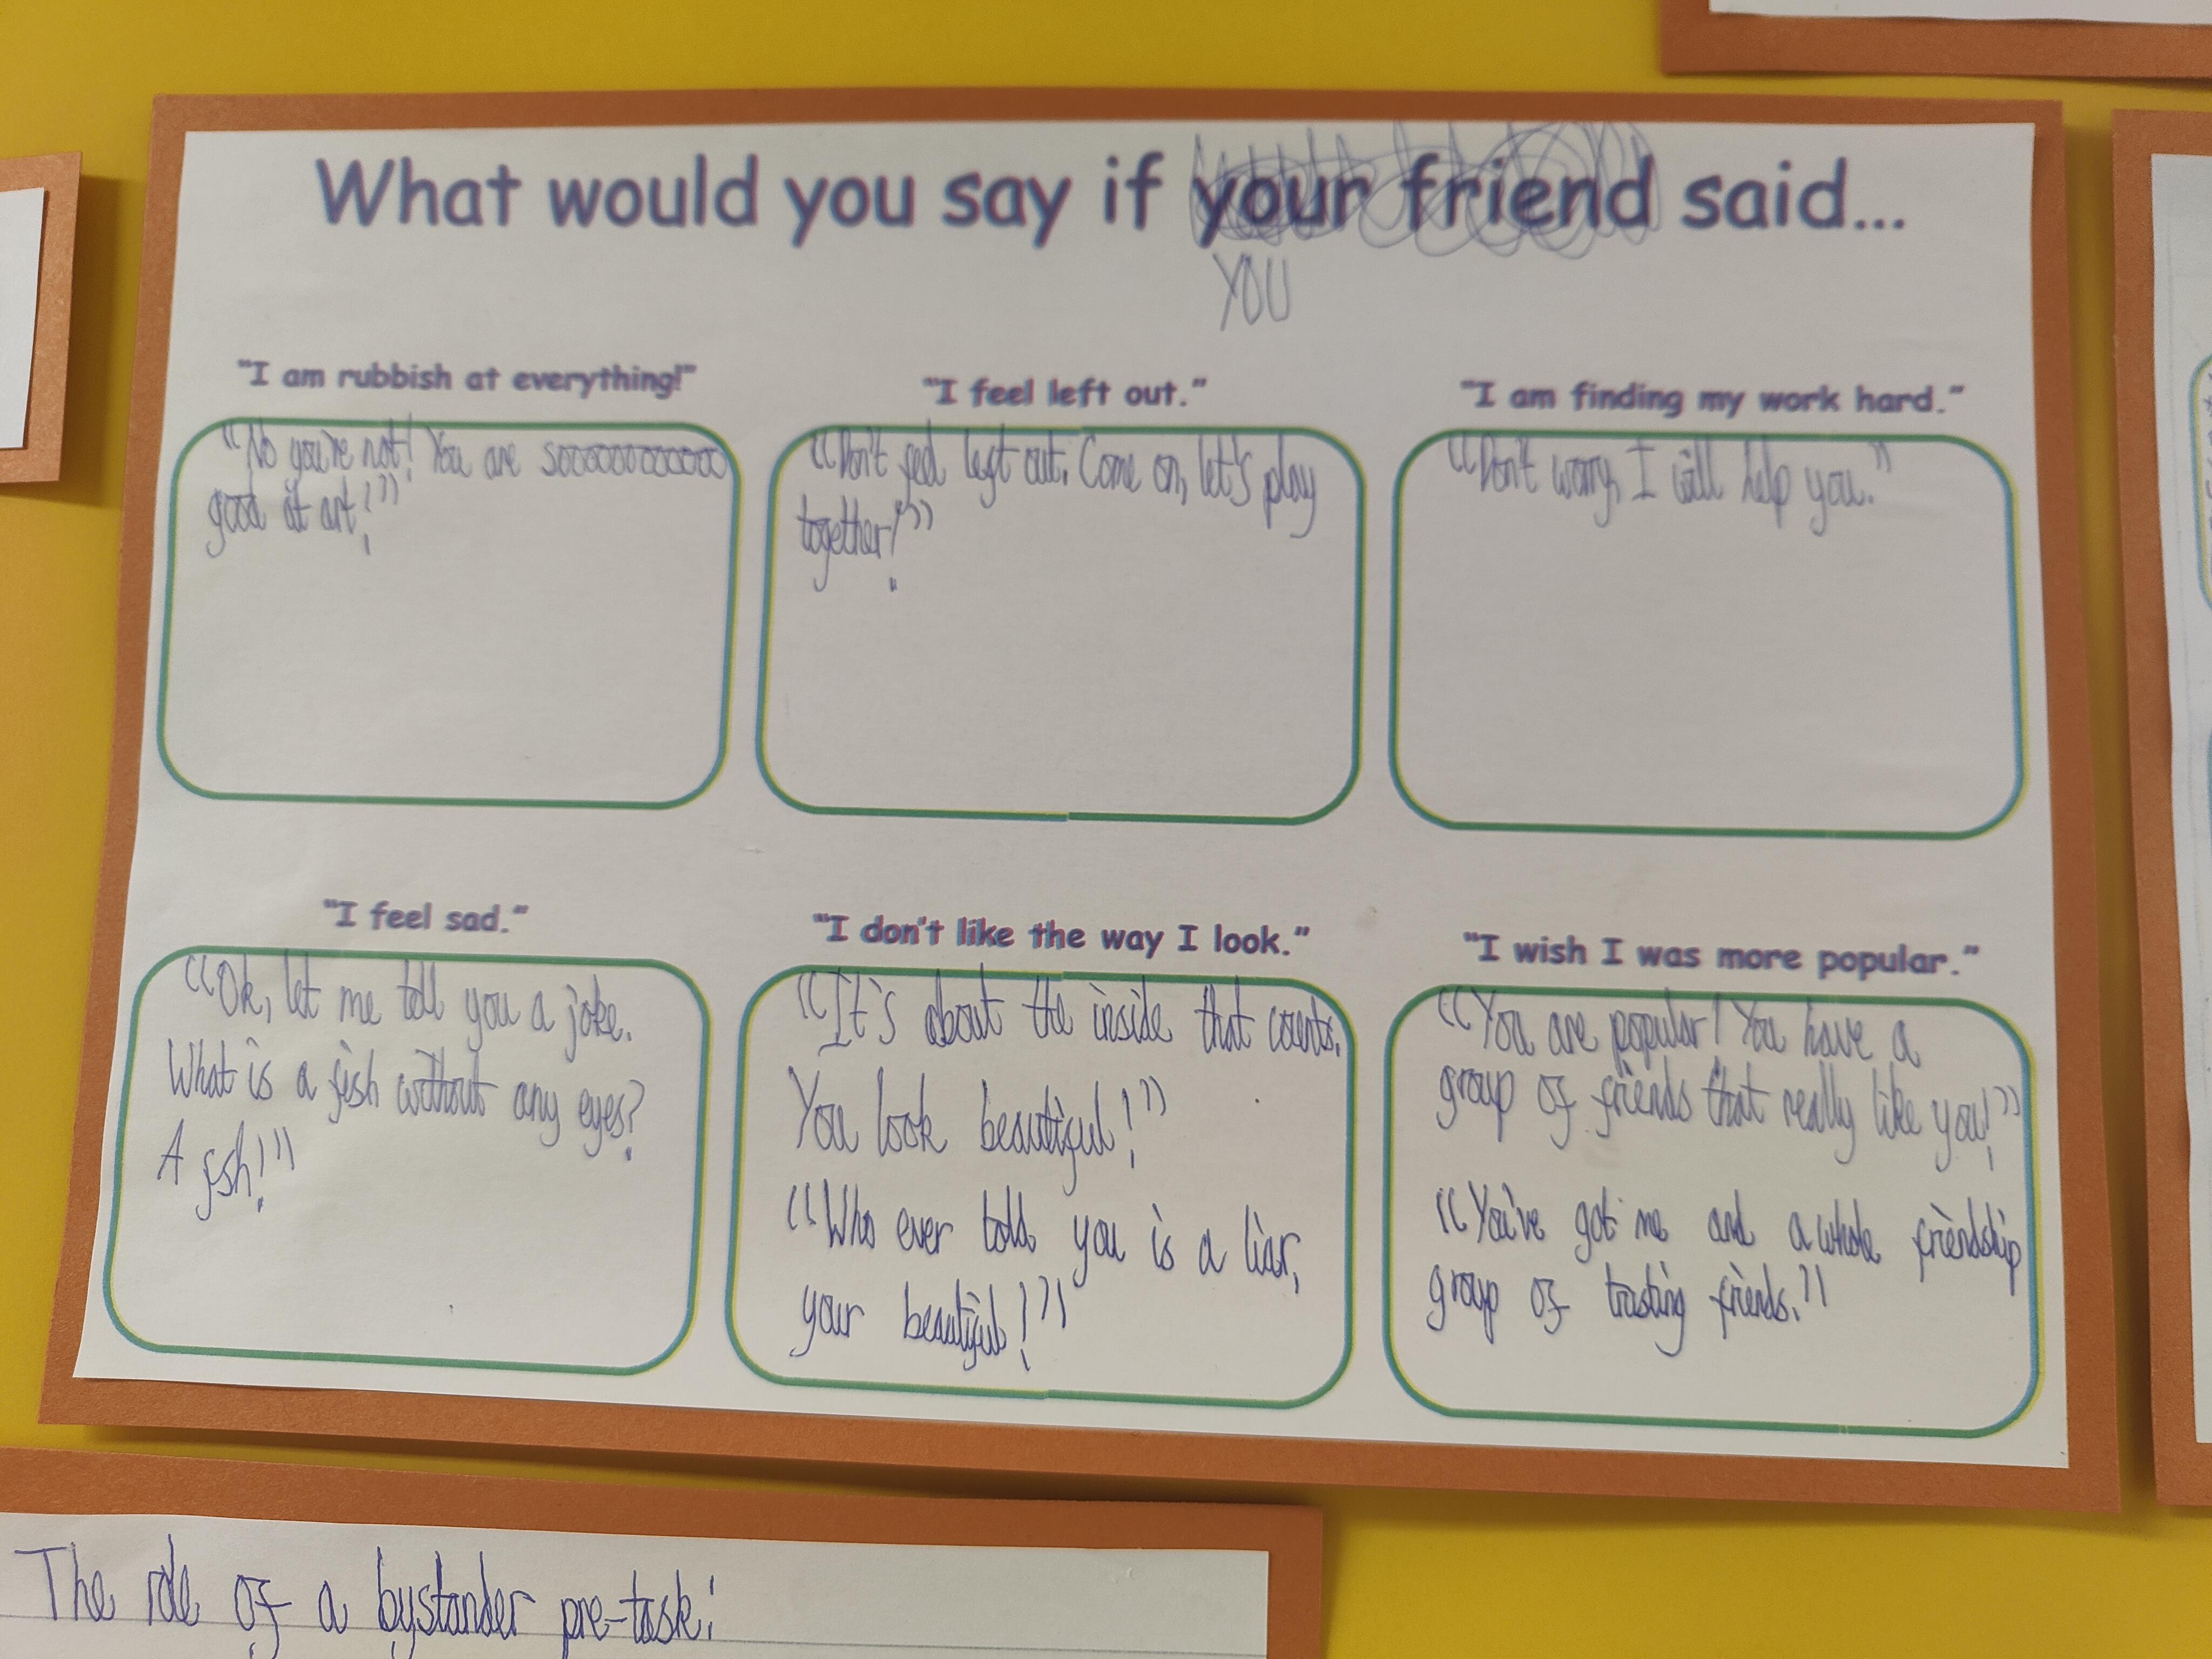 What would you say if your friend said...
YOU
"I am rubbish at everything!"
"No you're not! You are soooooooooooo
good at art!"
"I feel left out."
"Don't feel left out. Come on, let's play
together!"
"I am finding my work hard."
"Don't worry, I will help you."
"I feel sad."
"Ok, let me tell you a joke.
What is a fish without any eyes?
A fsh!"
"I don't like the way I look."
"It's about the inside that counts.
You look beautiful!"
"Who ever told you is a liar,
your beautiful!"
"I wish I was more popular."
"You are popular! You have a
group of friends that really like you!"
"You've got me and a whole friendship
group of trusting friends."
The role of a bystander pre-task: